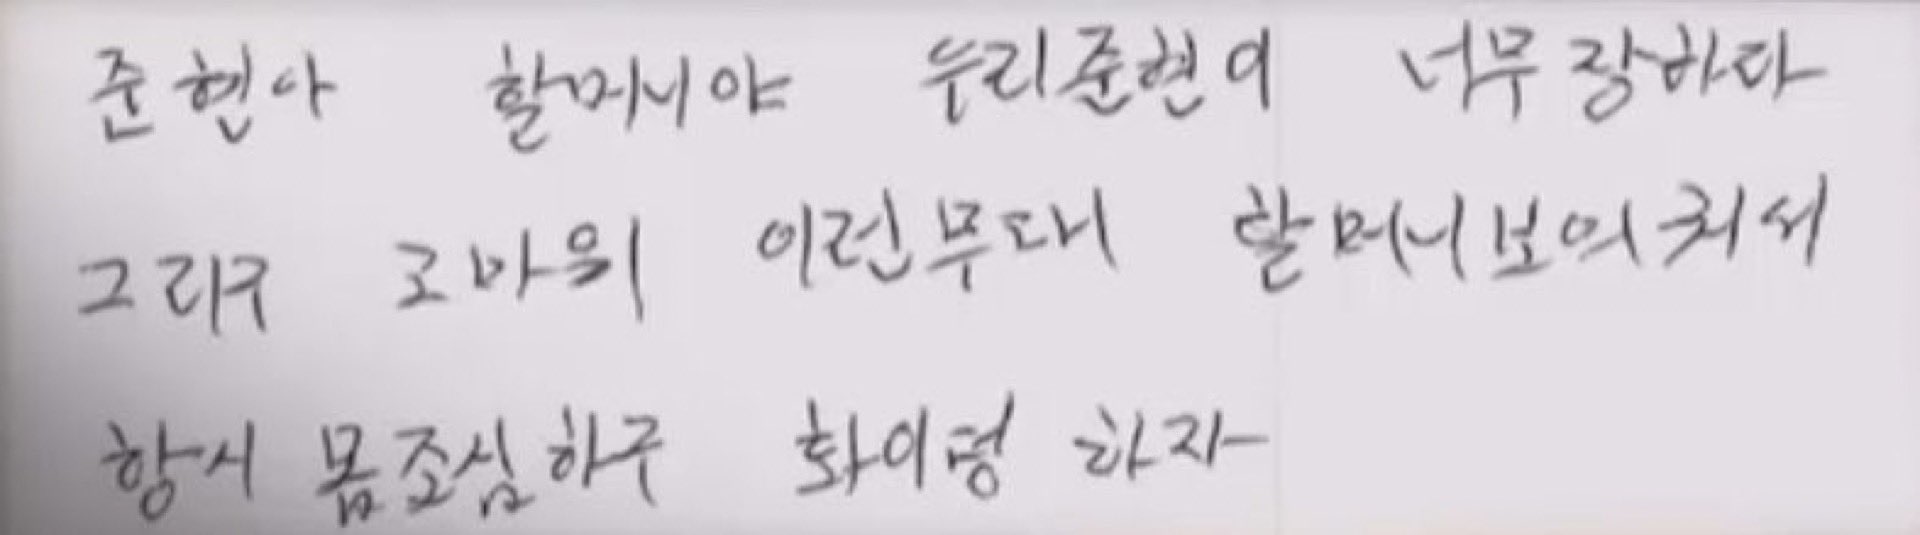 준현아 할머니야 우리준현이 너무장하다
그리구 고마위 이런무대 할머니보의 줘서
항시 몸조심하구 화이텅 하자